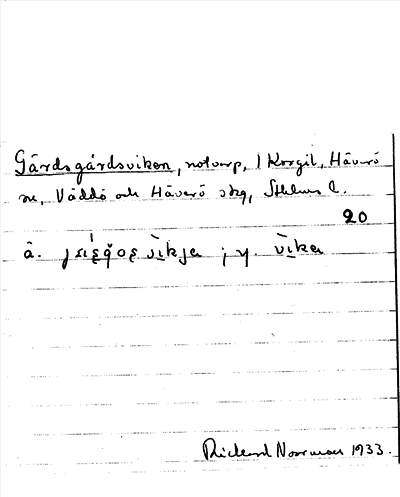 Gärdsgårdsviken, notvarp, 1 Korgil, Häverö
sn, Väddö och Häverö skg, Sthlms l.
20
å. vìkja ; y. vìka
Rickard Norrman 1933.